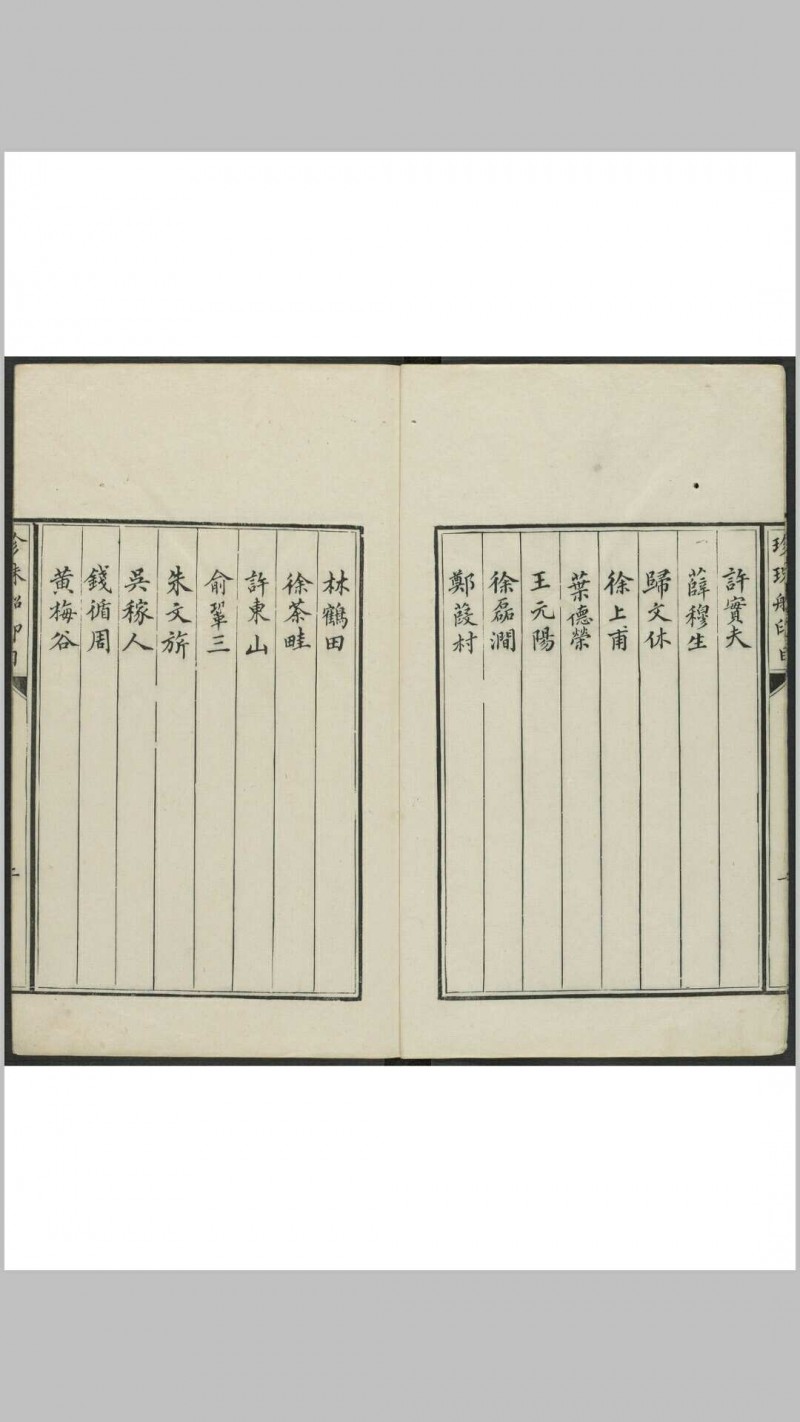 珍珠船印目
許實夫
薛穆生
歸文休
徐上甫
葉德榮
王元陽
徐磊澗
鄭葭村
林鶴田
徐茶畦
許東山
俞鞏三
朱文旂
吳稼人
錢循周
黃梅谷
珍珠船印目
二